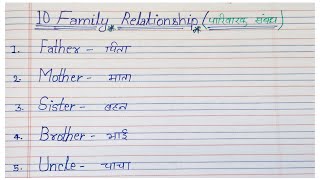 10 Family Relationship (पारिवारिक संबंध)
1. Father - पिता
2. Mother - माता
3. Sister - बहन
4. Brother - भाई
5. Uncle - चाचा